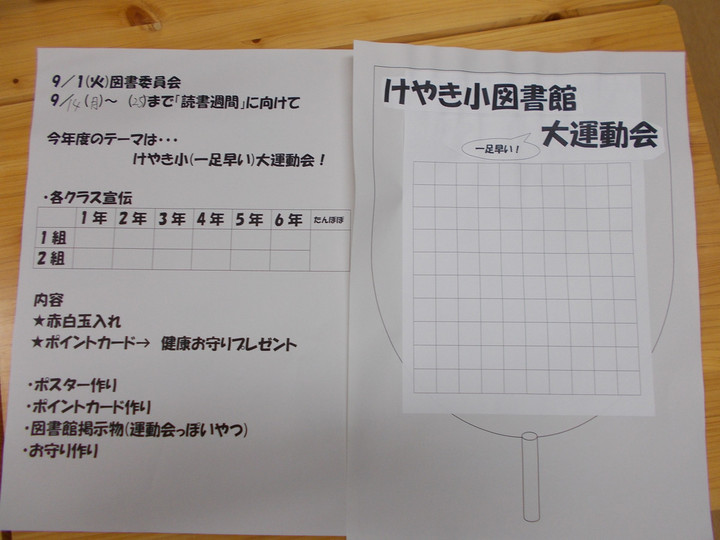 9/1(火)図書委員会
9/14(月)～ (25)まで「読書週間」に向けて
今年度のテーマは・・・
けやき小(一足早い)大運動会！
・各クラス宣伝
1年 2年 3年 4年 5年 6年 たんぽぽ
1組
2組
内容
★赤白玉入れ
★ポイントカード→ 健康お守りプレゼント
・ポスター作り
・ポイントカード作り
・図書館掲示物(運動会っぽいやつ)
・お守り作り
けやき小図書館
大運動会
一足早い！